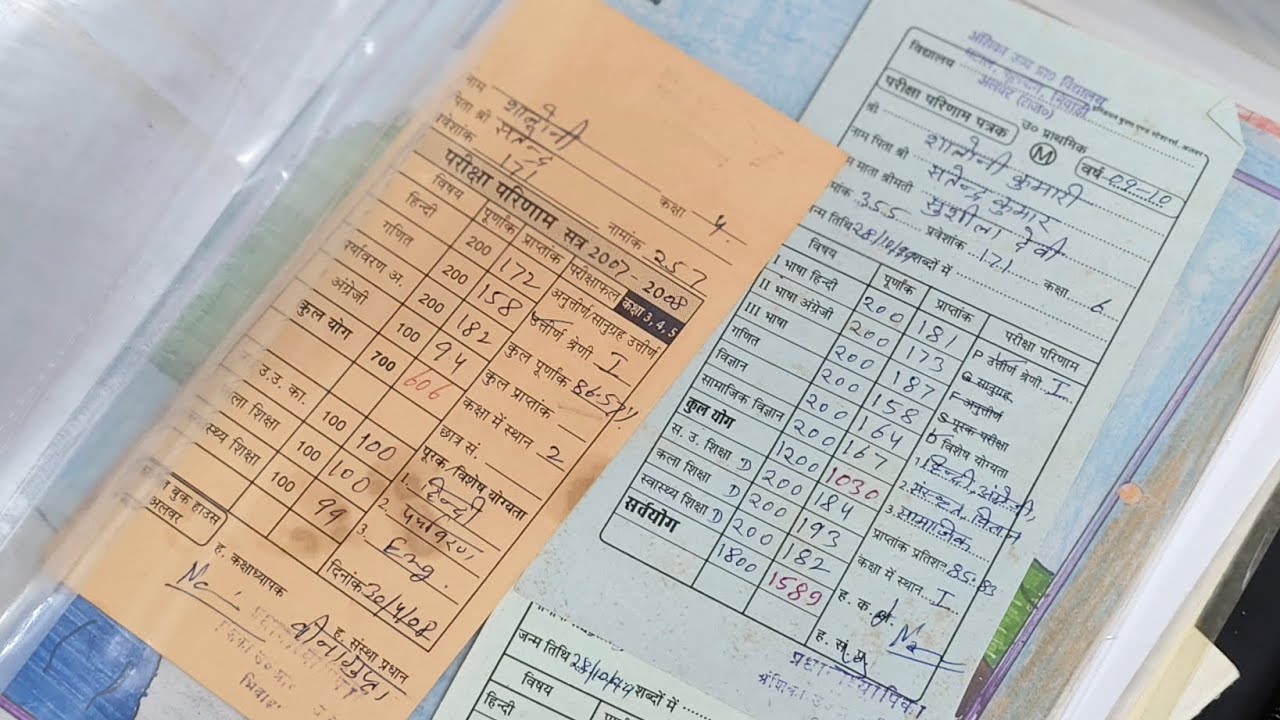 नाम शालोनी
पिता श्री सतेन्द्र
प्रवेशांक 171 कक्षा 4.
नामांक 257
परीक्षा परिणाम सत्र 2007-2008
विषय पूर्णांक प्राप्तांक परीक्षाफल कक्षा 3, 4, 5
हिन्दी 200 172 अनुत्तीर्ण/सानुग्रह उत्तीर्ण
गणित 200 158 उत्तीर्ण श्रेणी I
र्यावरण अ. 200 182 कुल पूर्णांक 86.57%
अंग्रेजी 100 94 कुल प्राप्तांक
कुल योग 700 606 कक्षा में स्थान 2
छात्र सं.
उ.उ. का. 100 100 पूरक/विशेष योग्यता
ला शिक्षा 100 100 हिन्दी
स्थ्य शिक्षा 100 99 2. पर्यावरण,
3. Eng.
बुक हाउस
अलवर
दिनांक 30/4/08
ह. कक्षाध्यापक
ह. संस्था प्रधान
विद्यालय
अंशिका उच्च प्रा० विद्यालय
अलवर (राज०)
परीक्षा परिणाम पत्रक
उ० प्राथमिक
M
वर्ष 09-10
श्री शालोनी कुमारी
नाम पिता श्री सतेन्द्र कुमार
म माता श्रीमती सुशीला देवी
मांक 355 प्रवेशांक 171 कक्षा 6
न्म तिथि 28/10/99 शब्दों में
विषय पूर्णांक प्राप्तांक परीक्षा परिणाम
I भाषा हिन्दी 200 181 P उत्तीर्ण श्रेणी I
II भाषा अंग्रेजी 200 173 G सानुग्रह
III भाषा 200 187 F अनुत्तीर्ण
गणित 200 158 S पूरक परीक्षा
विज्ञान 200 164 विशेष योग्यता
सामाजिक विज्ञान 200 167 1. हिन्दी, अंग्रेजी,
कुल योग 1200 1030 2. संस्कृत, विज्ञान
स. उ. शिक्षा D 200 184 3. सामाजिक
कला शिक्षा D 200 193 प्राप्तांक प्रतिशत 85.83
स्वास्थ्य शिक्षा D 200 182 कक्षा में स्थान I
सर्वयोग 1800 1589 ह. क.
ह. सं.
जन्म तिथि 28/10/99 शब्दों में
विषय
हिन्दी